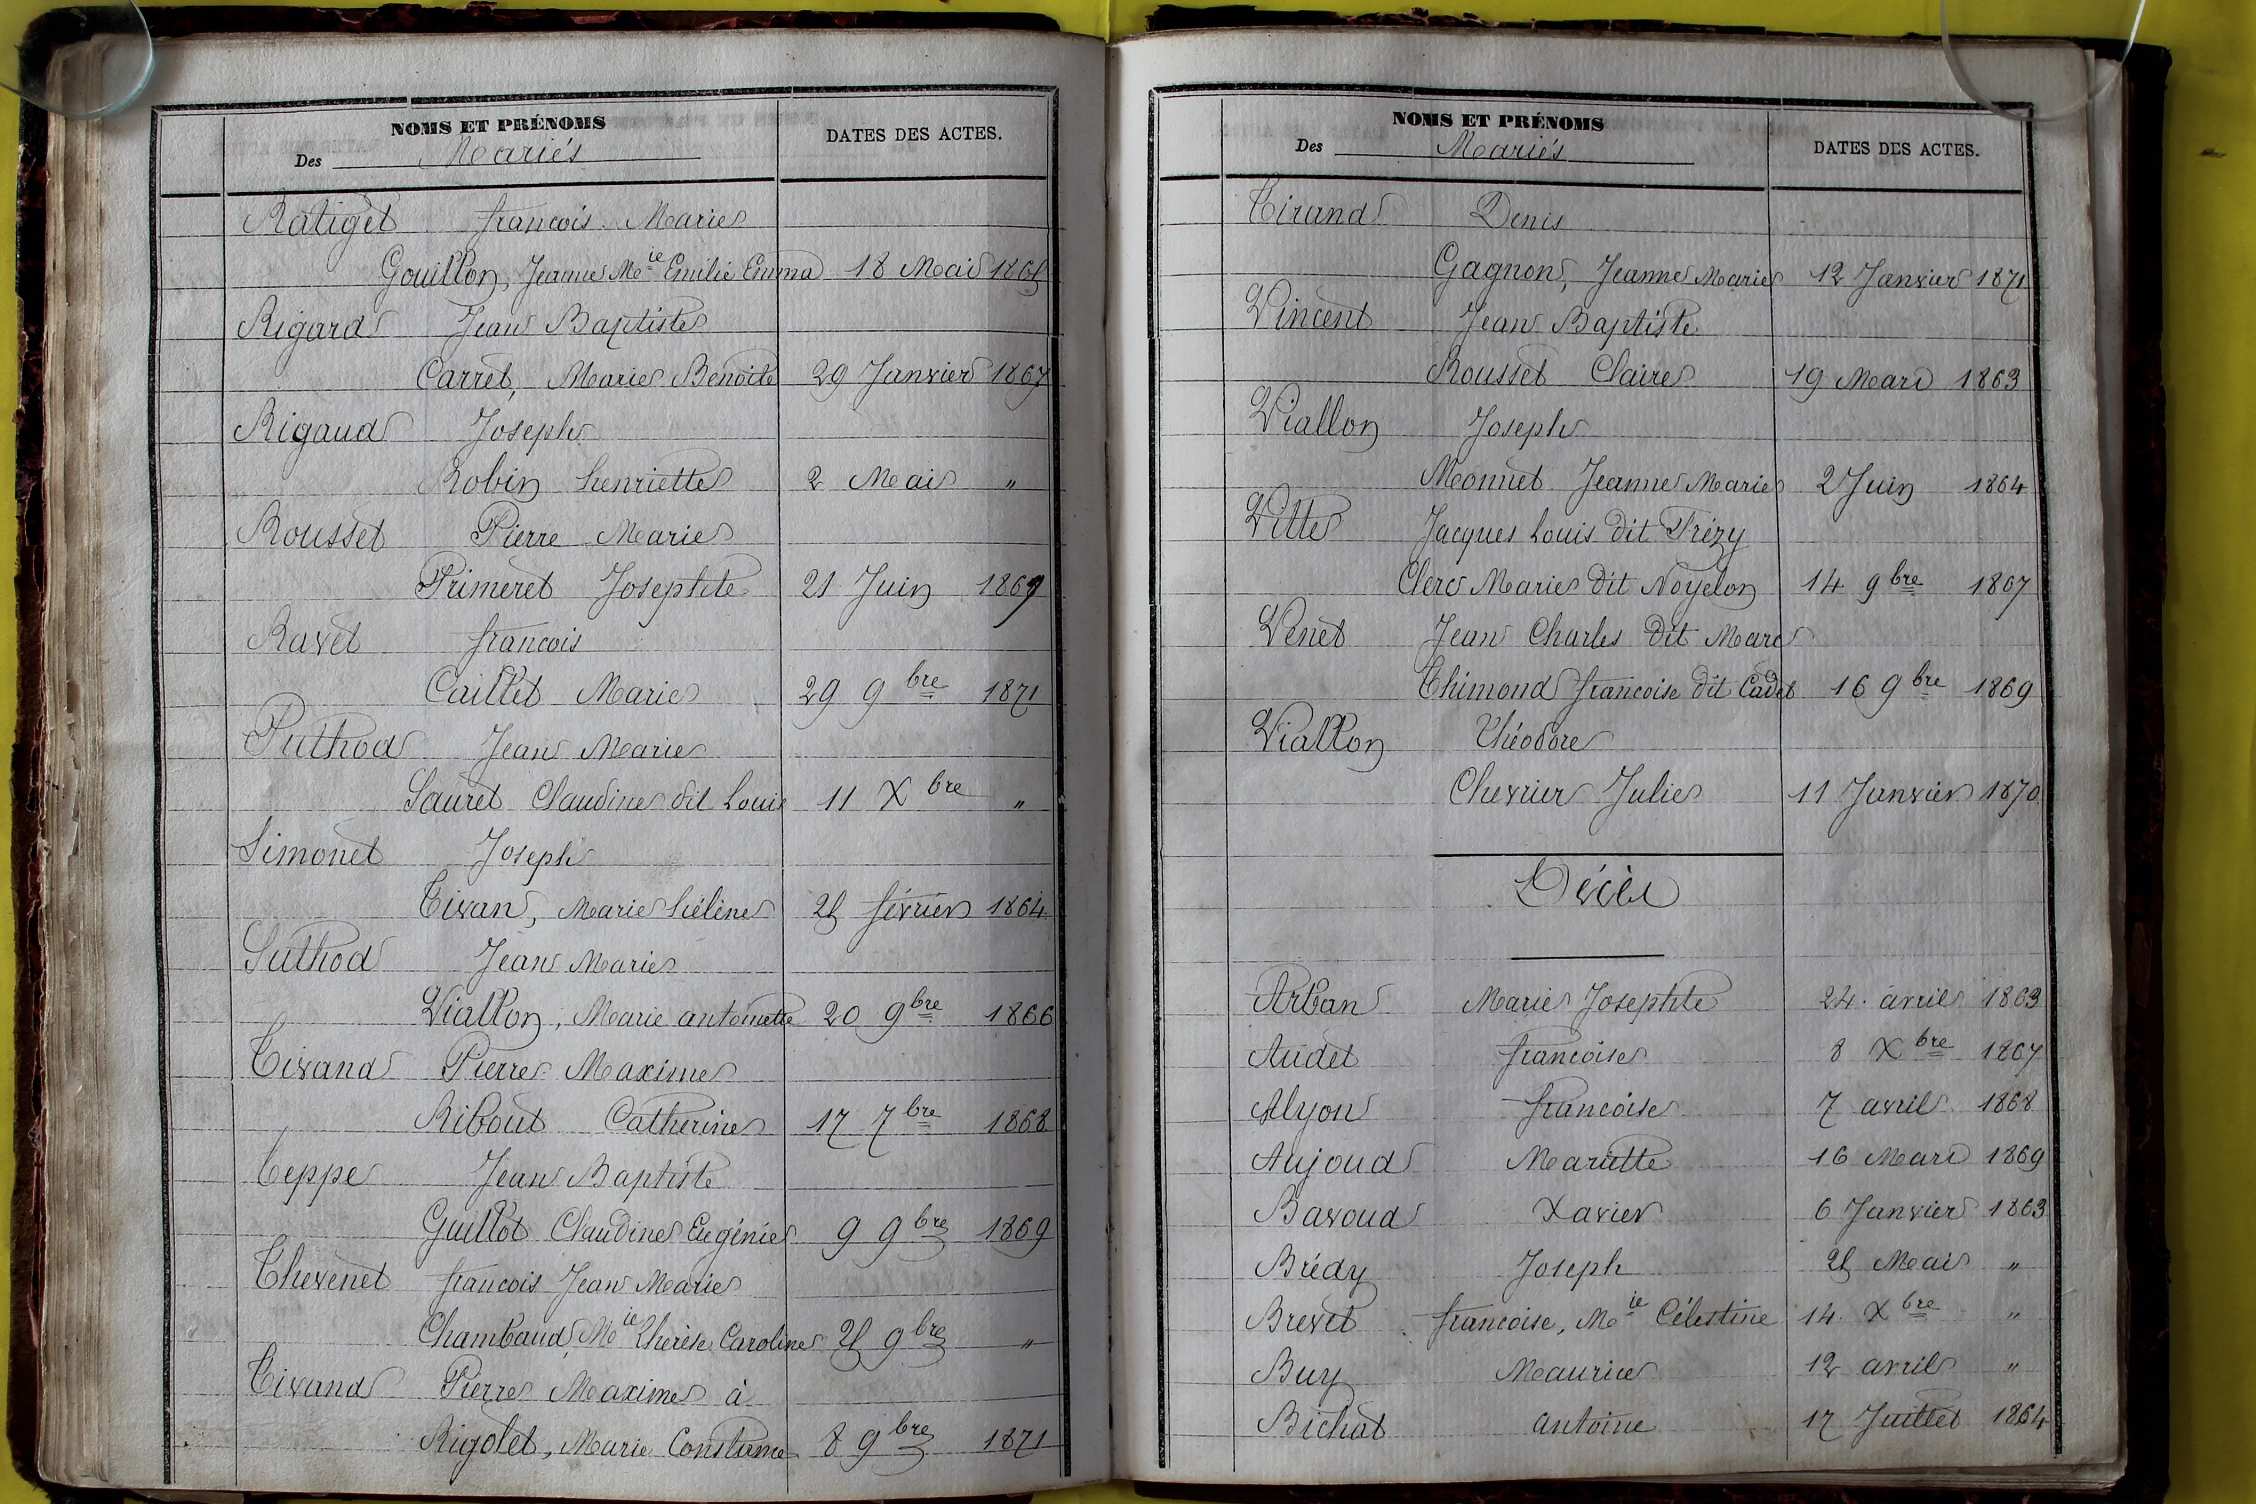 NOMS ET PRÉNOMS
Des Mariés DATES DES ACTES.
Ratiget francois Marie
Gouillon, Jeanne Mie Emilie Emma 18 Mai
Rigard Jean Baptiste
Carret, Marie Benoite 29 Janvier 1867
Rigaud Joseph
Robin henriette 2 Mai "
Rousset Pierre Marie
Primeret Josephte 21 Juin 1869
Ravet francois
Caillet Marie 29 9bre 1871
Puthod Jean Marie
Sauret Claudine dit Louis 11 Xbre "
Simonet Joseph
Tivan, Marie hélène 25 février 1864
Suthod Jean Marie
Viallon, Marie antoinette 20 9bre 1866
Tivand Pierre Maxime
Ribout Catherine 17 7bre 1868
Teppe Jean Baptiste
Guillot Claudine Eugénie 9 9bre 1869
Thevenet francois Jean Marie
Chambaud, Mie Thérèse Caroline 25 9bre "
Tivand Pierre Maxime à
Rigolet, Marie Constance 8 9bre 1871
NOMS ET PRÉNOMS
Des Mariés DATES DES ACTES.
Tirand Denis
Gagnon, Jeanne Marie 12 Janvier 1871
Vincent Jean Baptiste
Rousset Claire 19 Mars 1863
Viallon Joseph
Monnet Jeanne Marie 2 Juin 1864
Vitte Jacques Louis dit Trézy
Clerc Marie dit Noyelon 14 9bre 1867
Venet Jean Charles dit Marc
Thimond francoise dit Cadet 16 9bre 1869
Viallon Théodore
Chevrier Julie 11 Janvier 1870
Décès
Arban Marie Josephte 24 avril 1863
Audet francoise 8 Xbre 1867
Alyon francoise 7 avril 1868
Aujoud Mariette 16 Mars 1869
Bavoud Xavier 6 Janvier 1863
Brédy Joseph 25 Mai "
Brevet francoise, Mie Célestine 14 Xbre "
Buy Maurice 12 avril "
Bichat antoine 17 Juillet 1864